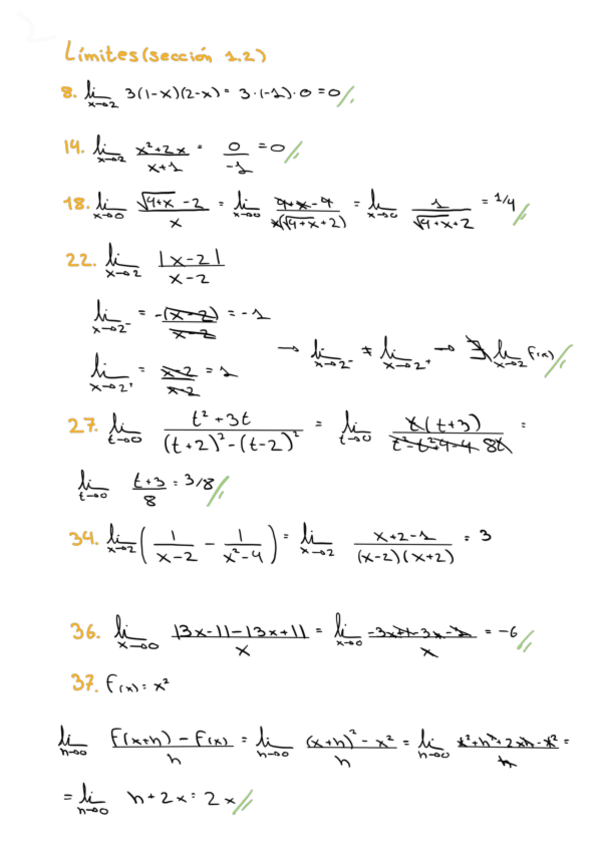 Límites (sección 1.2)
8. lim x→2 3(1-x)(2-x) = 3·(-1)·0 = 0
14. lim x→2 x²+2x / x+1 = 0 / -1 = 0
18. lim x→0 √4+x - 2 / x = lim x→0 4+x-4 / x(√4+x+2) = lim x→0 1 / √4+x+2 = 1/4
22. lim x→2 |x-2| / x-2
lim x→2⁻ = -(x-2) / x-2 = -1
lim x→2⁺ = x-2 / x-2 = 1 → lim x→2⁻ ≠ lim x→2⁺ → ∄ lim x→2 f(x)
27. lim t→0 t²+3t / (t+2)²-(t-2)² = lim t→0 t(t+3) / t²-t²+4-4 8t =
lim t→0 t+3 / 8 = 3/8
34. lim x→2 ( 1 / x-2 - 1 / x²-4 ) = lim x→2 x+2-1 / (x-2)(x+2) = 3
36. lim x→0 |3x-1|-|3x+1| / x = lim x→0 -3x+1-3x-1 / x = -6
37. f(x) = x²
lim h→0 f(x+h) - f(x) / h = lim h→0 (x+h)² - x² / h = lim h→0 x²+h²+2xh-x² / h =
= lim h→0 h+2x = 2x